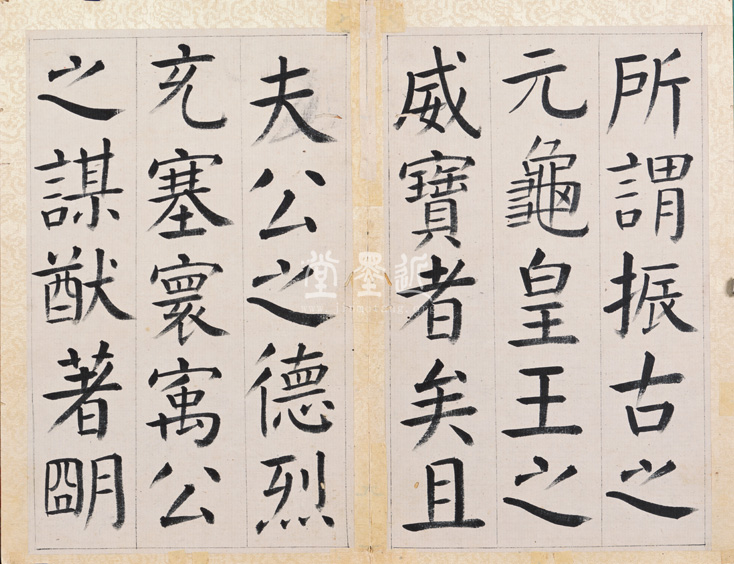 所謂振古之
元龜皇王之
威寶者矣且
夫公之德烈
充塞寰寓公
之謀猷著朙
近墨堂